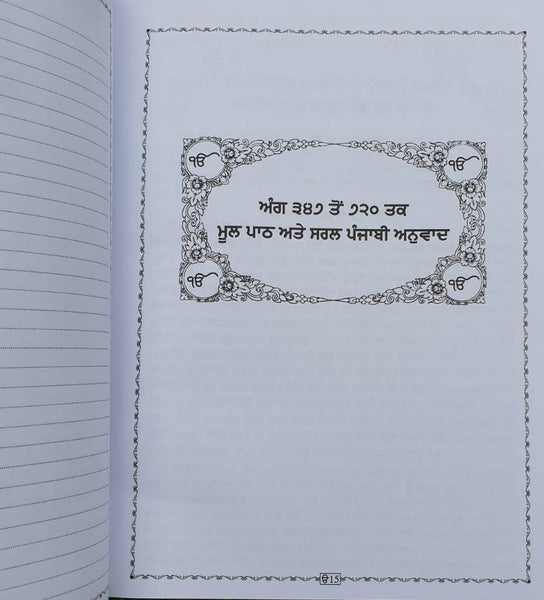 ੴ ੴ
ਅੰਗ ੩੪੭ ਤੋਂ ੭੨੦ ਤਕ
ਮੂਲ ਪਾਠ ਅਤੇ ਸਰਲ ਪੰਜਾਬੀ ਅਨੁਵਾਦ
ੴ ੴ
ੳ15